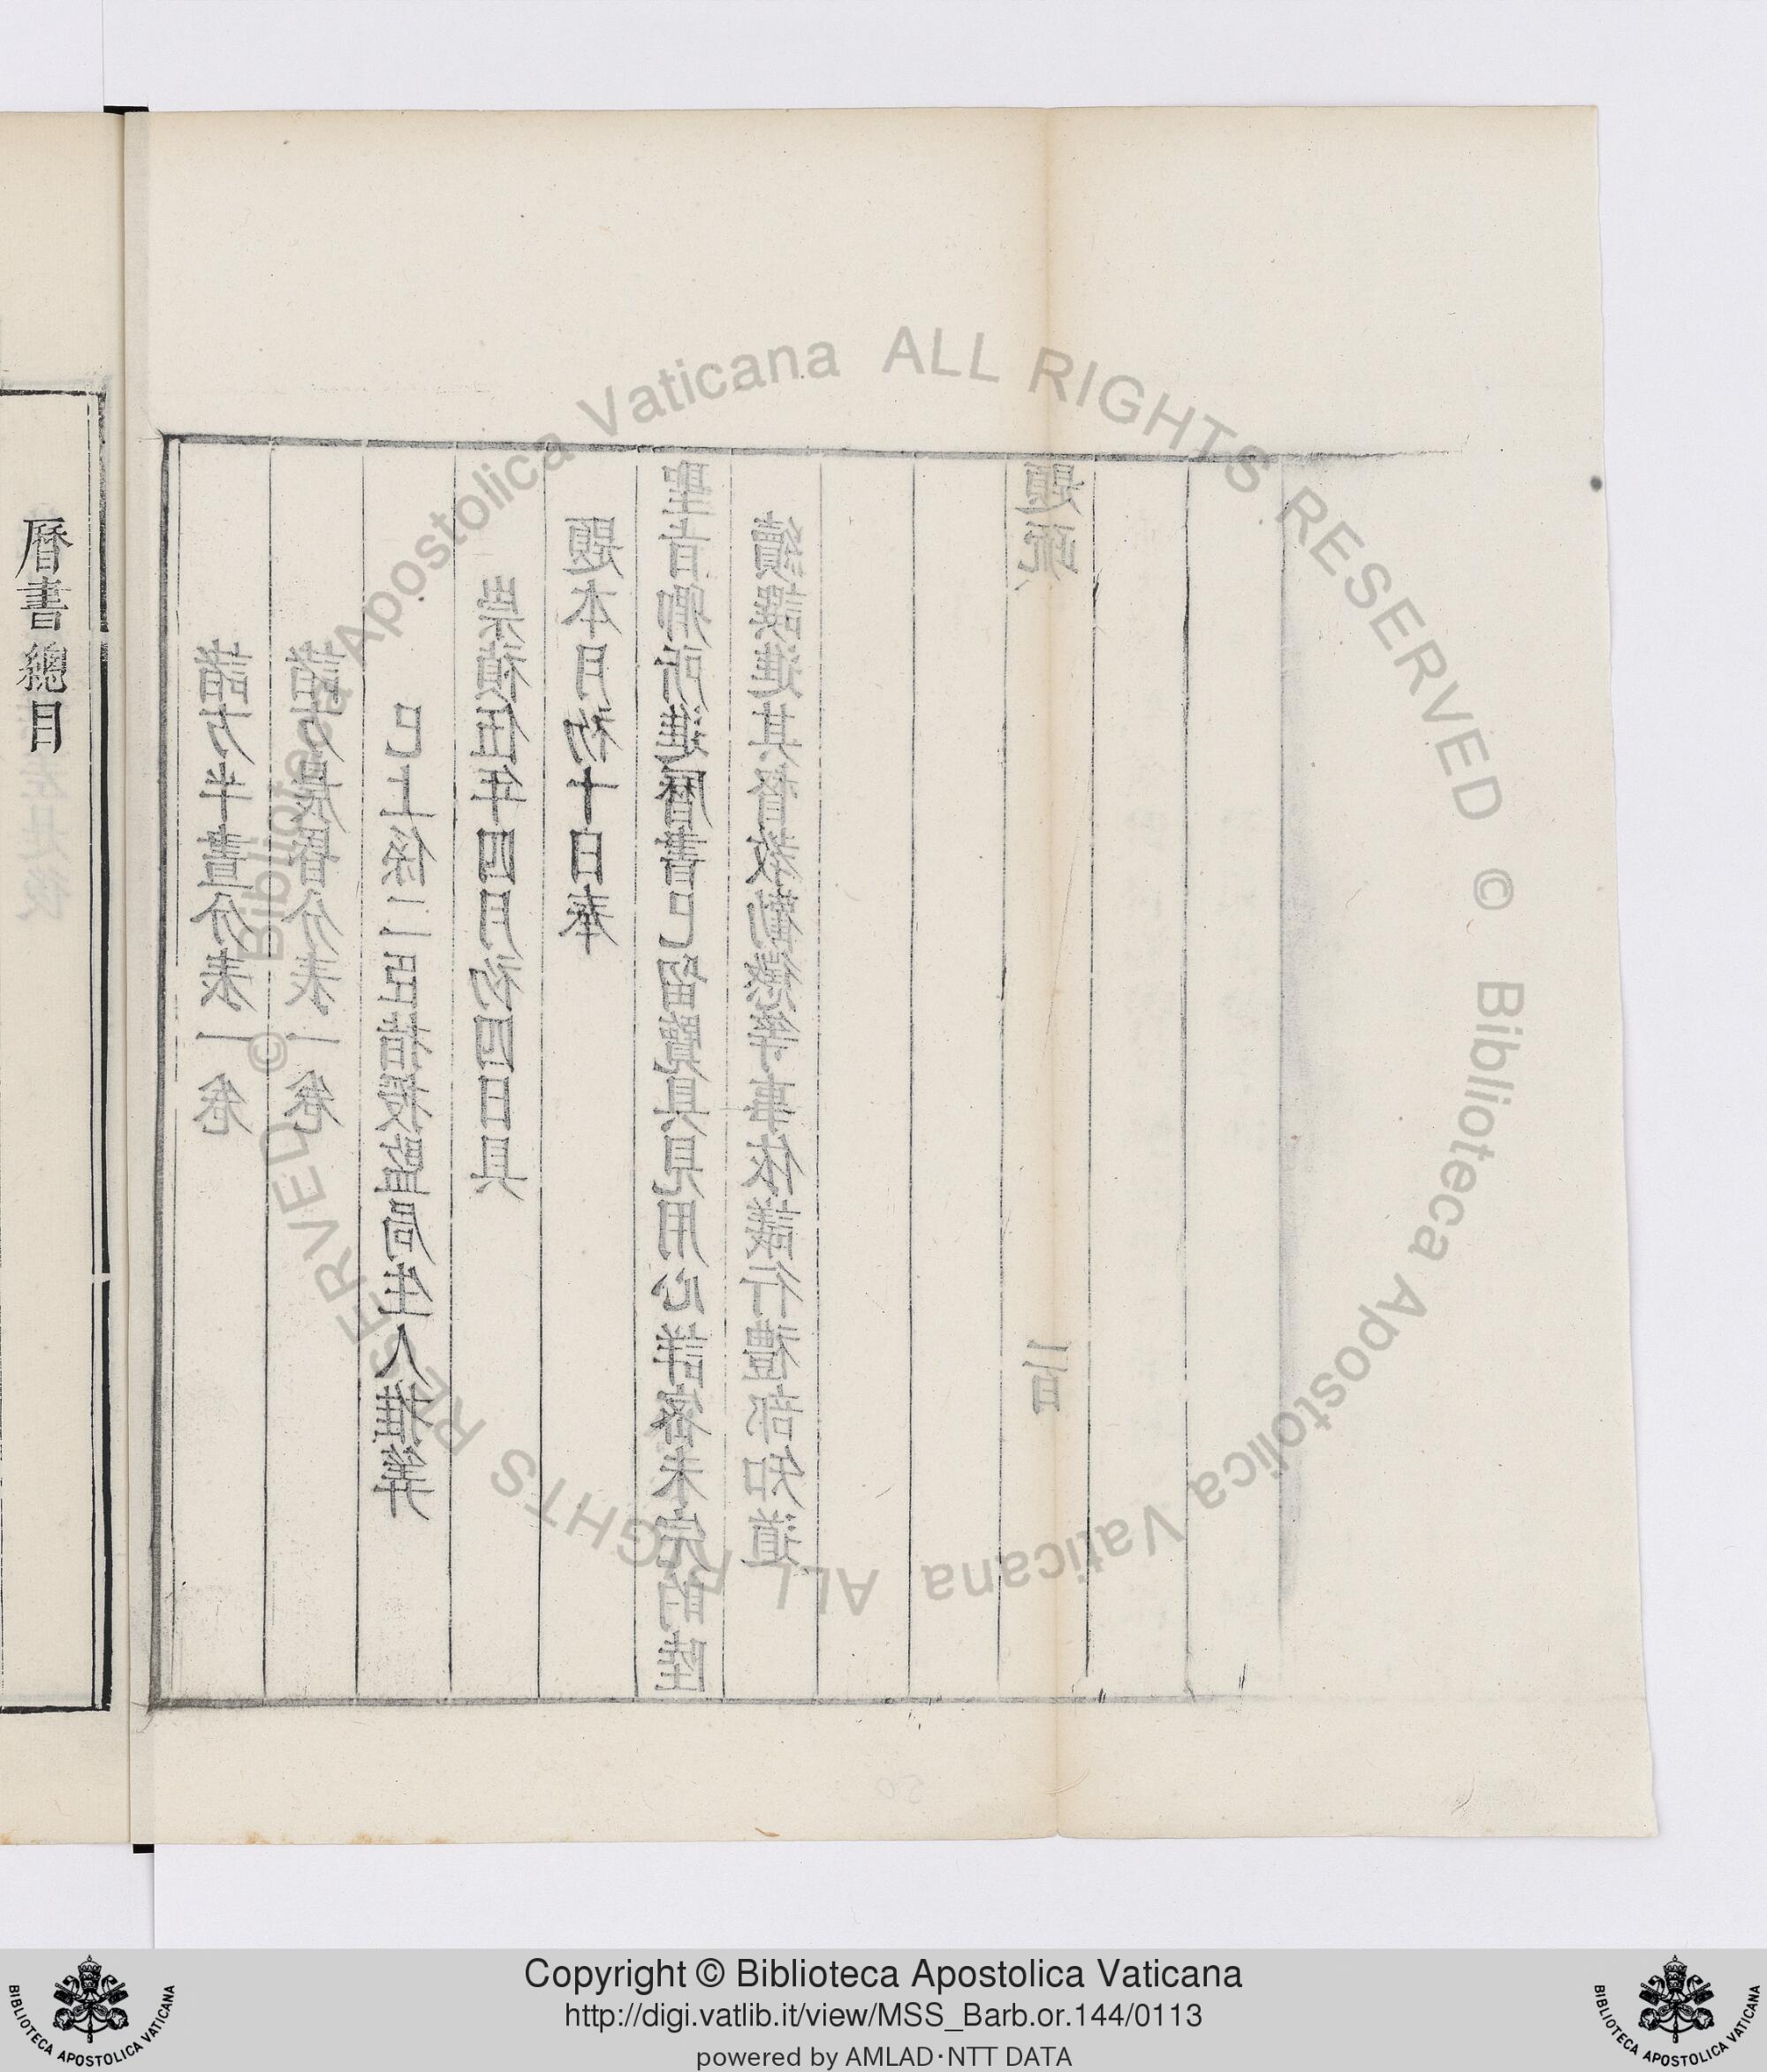 諸方半晝分表一卷
諸方晨昏分表一卷
已上係二臣指授監局生人推算
崇禎伍年四月初四日具
題本月初十日奉
聖旨卿所進曆書已留覽具見用心詳密未完的陸
續譔進其督教勸懲等事依議行禮部知道
題疏
曆書總目
Biblioteca Apostolica Vaticana ALL RIGHTS RESERVED © Biblioteca Apostolica Vaticana ALL RIGHTS RESERVED ©
20
BIBLIOTECA APOSTOLICA VATICANA
Copyright © Biblioteca Apostolica Vaticana
http://digi.vatlib.it/view/MSS_Barb.or.144/0113
powered by AMLAD·NTT DATA
BIBLIOTECA APOSTOLICA VATICANA